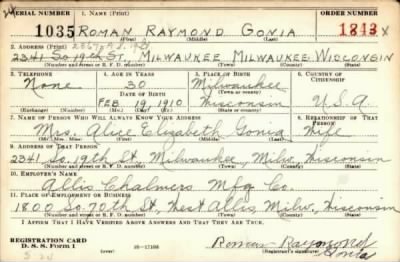 SERIAL NUMBER 1. NAME (Print) ORDER NUMBER
1035 ROMAN RAYMOND GONIA 1843 X
(First) (Middle) (Last)
2. ADDRESS (Print)
2341 So. 19th ST. MILWAUKEE MILWAUKEE WISCONSIN
(Number and street or R. F. D. number) (Town) (County) (State)
3. TELEPHONE 4. AGE IN YEARS 5. PLACE OF BIRTH 6. COUNTRY OF CITIZENSHIP
None 30 Milwaukee
DATE OF BIRTH (Town or county)
FEB 19 1910 Wisconsin U.S.A.
(Exchange) (Number) (Mo.) (Day) (Yr.) (State or country)
7. NAME OF PERSON WHO WILL ALWAYS KNOW YOUR ADDRESS 8. RELATIONSHIP OF THAT PERSON
Mrs. Alice Elizabeth Gonia Wife
(Mr., Mrs., Miss) (First) (Middle) (Last)
9. ADDRESS OF THAT PERSON
2341 So. 19th St. Milwaukee, Milw., Wisconsin
(Number and street or R. F. D. number) (Town) (County) (State)
10. EMPLOYER'S NAME
Allis Chalmers Mfg Co.
11. PLACE OF EMPLOYMENT OR BUSINESS
1800 So. 70th St., West Allis, Milw., Wisconsin
(Number and street or R. F. D. number) (Town) (County) (State)
I AFFIRM THAT I HAVE VERIFIED ABOVE ANSWERS AND THAT THEY ARE TRUE.
REGISTRATION CARD
D. S. S. Form 1 16-17105 Roman Raymond Gonia
(Registrant's signature)